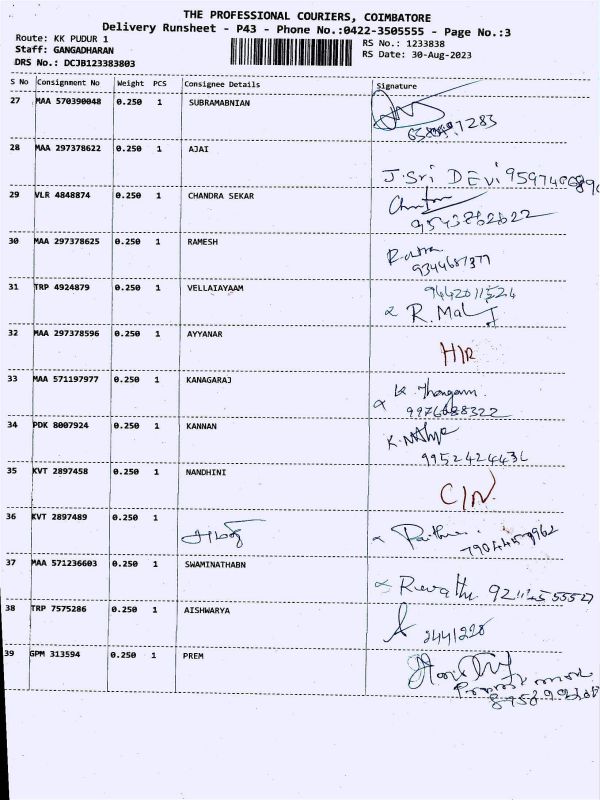 THE PROFESSIONAL COURIERS, COIMBATORE
Delivery Runsheet - P43 - Phone No.:0422-3505555 - Page No.:3
Route: KK PUDUR 1 RS No.: 1233838
Staff: GANGADHARAN RS Date: 30-Aug-2023
DRS No.: DCJB123383803
S No Consignment No Weight PCS Consignee Details Signature
27 MAA 570390048 0.250 1 SUBRAMABNIAN
28 MAA 297378622 0.250 1 AJAI
J. Sri DEvi
29 VLR 4848874 0.250 1 CHANDRA SEKAR
9543862622
30 MAA 297378625 0.250 1 RAMESH
9344687377
31 TRP 4924879 0.250 1 VELLAIAYAAM
9442011524
R. Mal
32 MAA 297378596 0.250 1 AYYANAR
33 MAA 571197977 0.250 1 KANAGARAJ
9976088322
34 PDK 8007924 0.250 1 KANNAN
9952424436
35 KVT 2897458 0.250 1 NANDHINI
C/N
36 KVT 2897489 0.250 1
7904459962
37 MAA 571236603 0.250 1 SWAMINATHABN
Revathi
38 TRP 7575286 0.250 1 AISHWARYA
2441228
39 GPM 313594 0.250 1 PREM